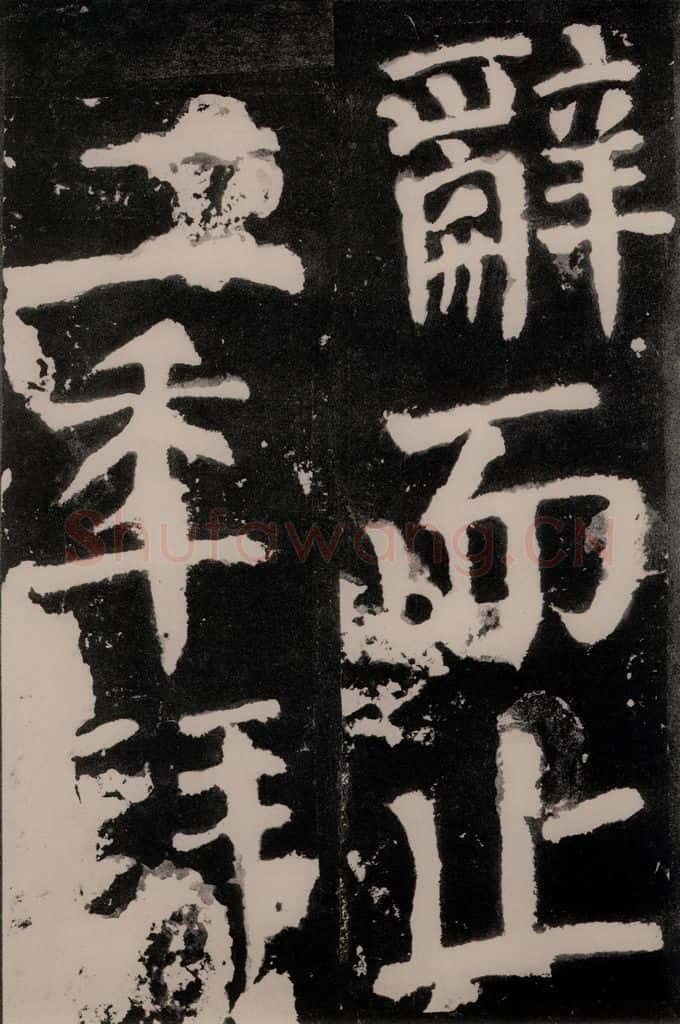 辭而止
年拜
Shufawang.CN